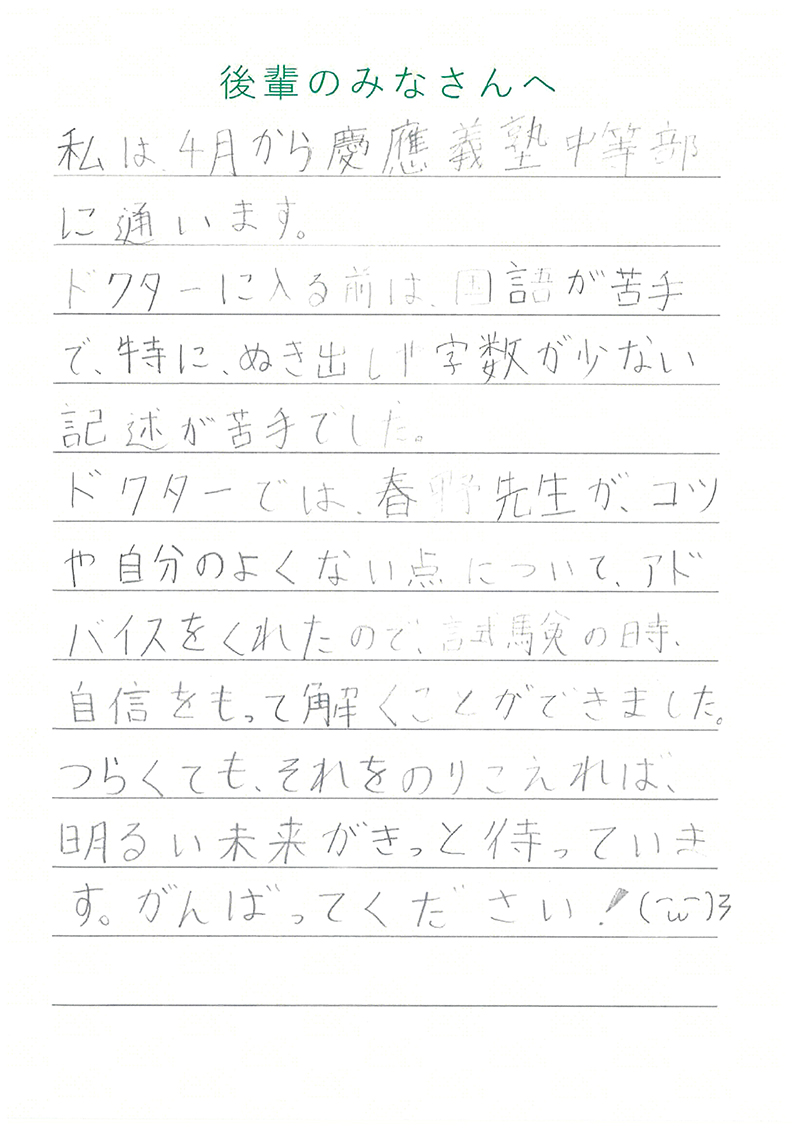 後輩のみなさんへ
私は、4月から慶應義塾中等部
に通います。
ドクターに入る前は、国語が苦手
で、特に、ぬき出しや字数が少ない
記述が苦手でした。
ドクターでは、春野先生が、コツ
や自分のよくない点について、アド
バイスをくれたので、試験の時、
自信をもって解くことができました。
つらくても、それをのりこえれば、
明るい未来がきっと待っていま
す。がんばってください!(¯ω¯)ろ